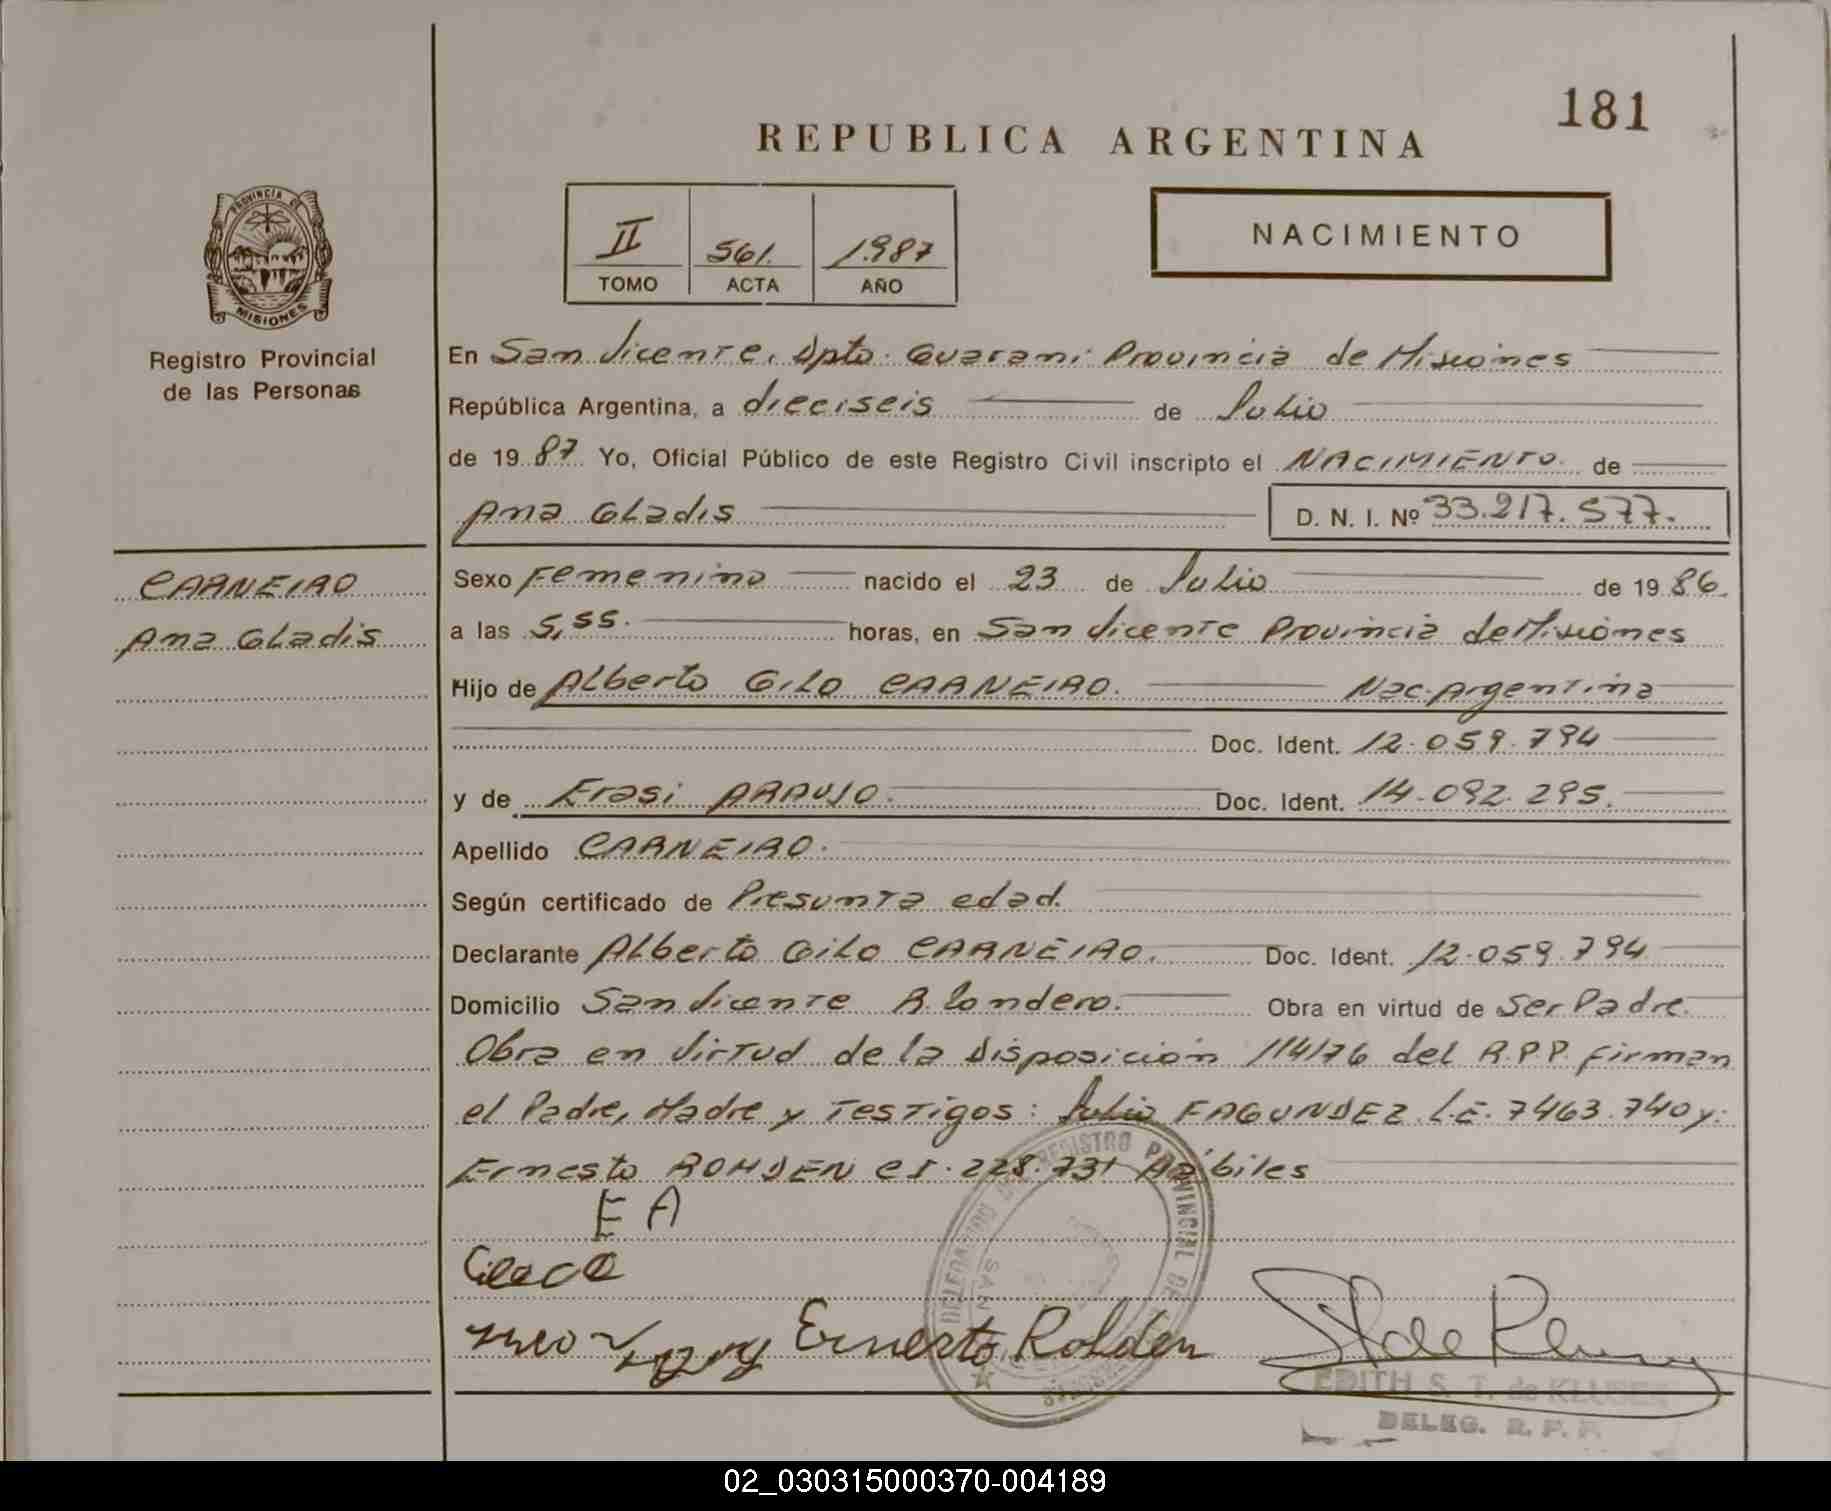 181
REPUBLICA ARGENTINA
PROVINCIA DE
MISIONES
Registro Provincial
de las Personas
II 561. 1.987
TOMO ACTA AÑO
NACIMIENTO
En San Vicente, Dpto. Guarani Provincia de Misiones
República Argentina, a dieciseis de Julio
de 1987 Yo, Oficial Público de este Registro Civil inscripto el NACIMIENTO de
Ana Gladis D. N. I. Nº 33.217.577.
CARNEIRO
Ana Gladis
Sexo Femenino nacido el 23 de Julio de 1986.
a las 5,55. horas, en San Vicente Provincia de Misiones
Hijo de Alberto Gilo CARNEIRO. Nac. Argentina
Doc. Ident. 12.059.794
y de Erasi ARAUJO. Doc. Ident. 14.092.295.
Apellido CARNEIRO.
Según certificado de Presunta edad.
Declarante Alberto Gilo CARNEIRO. Doc. Ident. 12.059.794
Domicilio San Vicente B. Londero. Obra en virtud de Ser Padre.
Obra en virtud de la Disposición 114/76 del R.P.P. firman
el Padre, Madre y Testigos: Julio FAGUNDEZ L.E. 7463.740 y:
Ernesto ROHDEN CI. 228.731 Habiles
E A
Ernesto Rohden
REGISTRO PROVINCIAL DE
SAN
EDITH S. T. de KLUSEN
DELEG. R. P. P.
02_030315000370-004189